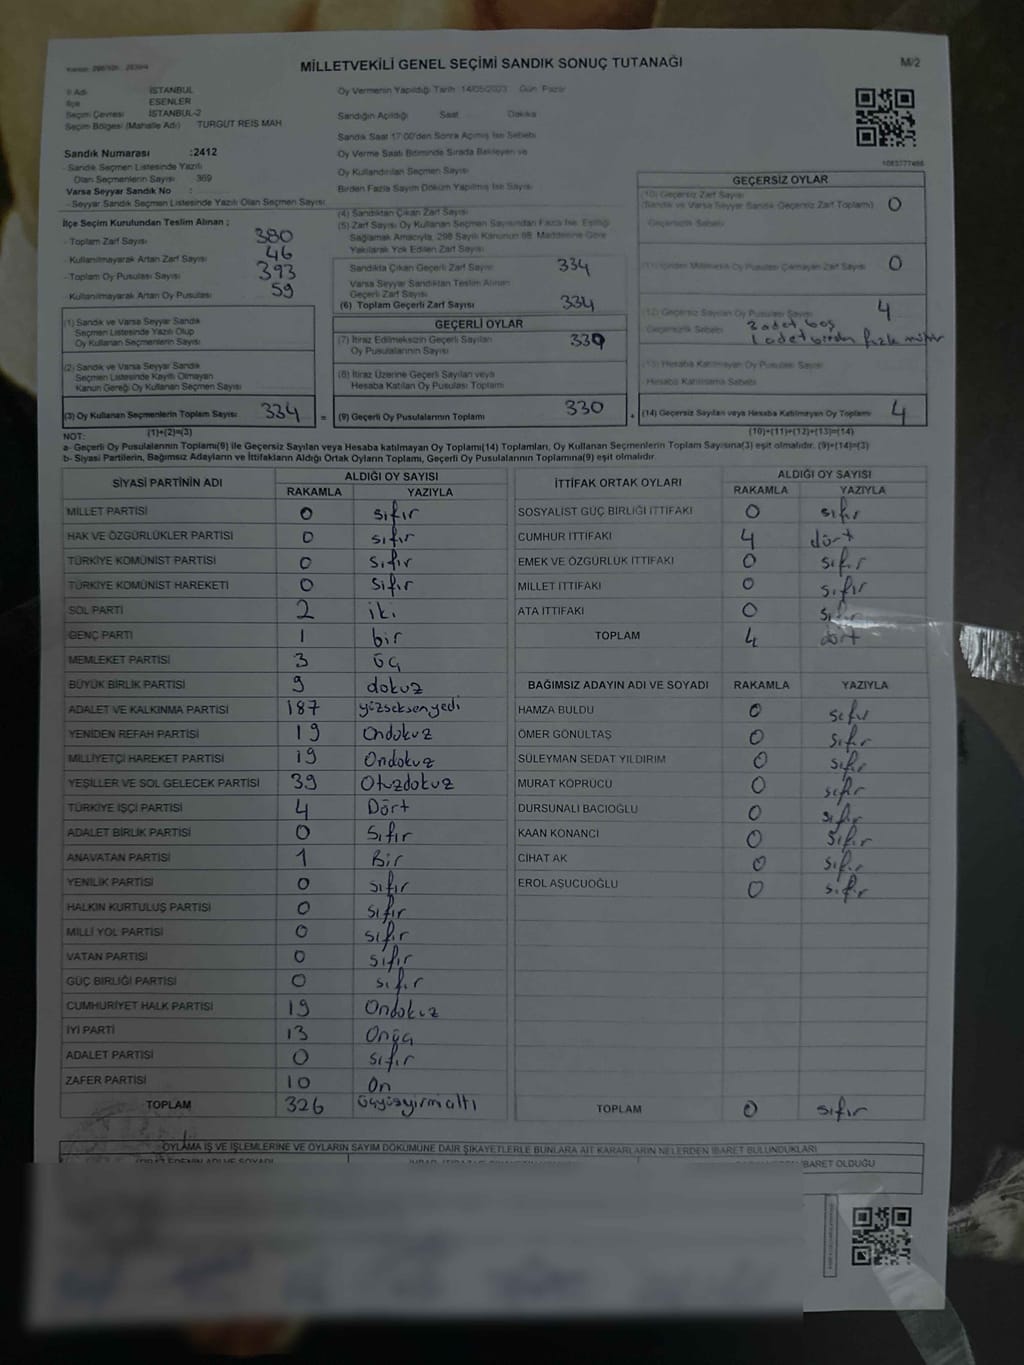 MİLLETVEKİLİ GENEL SEÇİMİ SANDIK SONUÇ TUTANAĞI
M/2
İl Adı İSTANBUL
İlçe ESENLER
Seçim Çevresi İSTANBUL-2
Seçim Bölgesi (Mahalle Adı) TURGUT REİS MAH
Oy Vermenin Yapıldığı Tarih :14/05/2023 Gün: Pazar
Sandığın Açıldığı Saat Dakika
Sandık Saat 17:00'den Sonra Açılmış İse Sebebi
Sandık Numarası :2412
- Sandık Seçmen Listesinde Yazılı
Olan Seçmenlerin Sayısı 369
Varsa Seyyar Sandık No :
- Seyyar Sandık Seçmen Listesinde Yazılı Olan Seçmen Sayısı
Oy Verme Saati Bitiminde Sırada Bekleyen ve
Oy Kullandırılan Seçmen Sayısı
Birden Fazla Sayım Döküm Yapılmış İse Sayısı
İlçe Seçim Kurulundan Teslim Alınan ;
- Toplam Zarf Sayısı 380
- Kullanılmayarak Artan Zarf Sayısı 46
- Toplam Oy Pusulası Sayısı 393
- Kullanılmayarak Artan Oy Pusulası 59
(1) Sandık ve Varsa Seyyar Sandık
Seçmen Listesinde Yazılı Olup
Oy Kullanan Seçmenlerin Sayısı
(2) Sandık ve Varsa Seyyar Sandık
Seçmen Listesinde Kayıtlı Olmayan
Kanun Gereği Oy Kullanan Seçmen Sayısı
(3) Oy Kullanan Seçmenlerin Toplam Sayısı 334 =
(1)+(2)=(3)
(4) Sandıktan Çıkan Zarf Sayısı
(5) Zarf Sayısı Oy Kullanan Seçmen Sayısından Fazla İse, Eşitliği
Sağlamak Amacıyla, 298 Sayılı Kanunun 98. Maddesine Göre
Yakılarak Yok Edilen Zarf Sayısı
Sandıkta Çıkan Geçerli Zarf Sayısı 334
Varsa Seyyar Sandıktan Teslim Alınan
Geçerli Zarf Sayısı
(6) Toplam Geçerli Zarf Sayısı 334
GEÇERLİ OYLAR
(7) İtiraz Edilmeksizin Geçerli Sayılan
Oy Pusulalarının Sayısı 330
(8) İtiraz Üzerine Geçerli Sayılan veya
Hesaba Katılan Oy Pusulası Toplamı
(9) Geçerli Oy Pusulalarının Toplamı 330 +
1083777466
GEÇERSİZ OYLAR
(10) Geçersiz Zarf Sayısı
(Sandık ve Varsa Seyyar Sandık Geçersiz Zarf Toplamı) 0
Geçersizlik Sebebi
(11) İçinden Milletvekili Oy Pusulası Çıkmayan Zarf Sayısı 0
(12) Geçersiz Sayılan Oy Pusulası Sayısı 4
Geçersizlik Sebebi 3 adet boş
1 adet birden fazla mühür
(13) Hesaba Katılmayan Oy Pusulası Sayısı
Hesaba Katılmama Sebebi
(14) Geçersiz Sayılan veya Hesaba Katılmayan Oy Toplamı 4
(10)+(11)+(12)+(13)=(14)
NOT:
a- Geçerli Oy Pusulalarının Toplamı(9) ile Geçersiz Sayılan veya Hesaba katılmayan Oy Toplamı(14) Toplamları, Oy Kullanan Seçmenlerin Toplam Sayısına(3) eşit olmalıdır. (9)+(14)=(3)
b- Siyasi Partilerin, Bağımsız Adayların ve İttifakların Aldığı Ortak Oyların Toplamı, Geçerli Oy Pusulalarının Toplamına(9) eşit olmalıdır.
SİYASİ PARTİNİN ADI ALDIĞI OY SAYISI
RAKAMLA YAZIYLA
MİLLET PARTİSİ 0 sıfır
HAK VE ÖZGÜRLÜKLER PARTİSİ 0 sıfır
TÜRKİYE KOMÜNİST PARTİSİ 0 sıfır
TÜRKİYE KOMÜNİST HAREKETİ 0 sıfır
SOL PARTİ 2 iki
GENÇ PARTİ 1 bir
MEMLEKET PARTİSİ 3 üç
BÜYÜK BİRLİK PARTİSİ 9 dokuz
ADALET VE KALKINMA PARTİSİ 187 yüzseksenyedi
YENİDEN REFAH PARTİSİ 19 Ondokuz
MİLLİYETÇİ HAREKET PARTİSİ 19 Ondokuz
YEŞİLLER VE SOL GELECEK PARTİSİ 39 Otuzdokuz
TÜRKİYE İŞÇİ PARTİSİ 4 Dört
ADALET BİRLİK PARTİSİ 0 Sıfır
ANAVATAN PARTİSİ 1 Bir
YENİLİK PARTİSİ 0 sıfır
HALKIN KURTULUŞ PARTİSİ 0 sıfır
MİLLİ YOL PARTİSİ 0 sıfır
VATAN PARTİSİ 0 sıfır
GÜÇ BİRLİĞİ PARTİSİ 0 sıfır
CUMHURİYET HALK PARTİSİ 19 Ondokuz
İYİ PARTİ 13 Onüç
ADALET PARTİSİ 0 sıfır
ZAFER PARTİSİ 10 On
TOPLAM 326 üçyüzyirmialtı
İTTİFAK ORTAK OYLARI ALDIĞI OY SAYISI
RAKAMLA YAZIYLA
SOSYALİST GÜÇ BİRLİĞİ İTTİFAKI 0 sıfır
CUMHUR İTTİFAKI 4 dört
EMEK VE ÖZGÜRLÜK İTTİFAKI 0 sıfır
MİLLET İTTİFAKI 0 sıfır
ATA İTTİFAKI 0 sıfır
TOPLAM 4 dört
BAĞIMSIZ ADAYIN ADI VE SOYADI RAKAMLA YAZIYLA
HAMZA BULDU 0 sıfır
ÖMER GÖNÜLTAŞ 0 sıfır
SÜLEYMAN SEDAT YILDIRIM 0 sıfır
MURAT KÖPRÜCÜ 0 sıfır
DURSUNALİ BACIOĞLU 0 sıfır
KAAN KONANCI 0 sıfır
CİHAT AK 0 sıfır
EROL AŞUCUOĞLU 0 sıfır
TOPLAM 0 sıfır
OYLAMA İŞ VE İŞLEMLERİNE VE OYLARIN SAYIM DÖKÜMÜNE DAİR ŞİKAYETLERLE BUNLARA AİT KARARLARIN NELERDEN İBARET BULUNDUKLARI
İBARET OLDUĞU